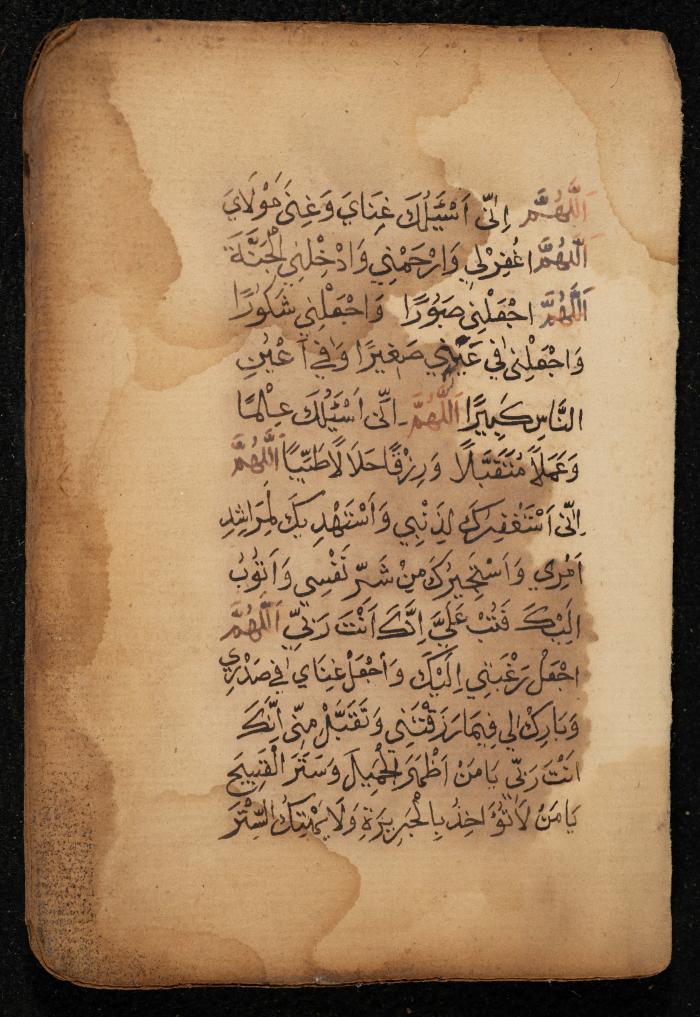 اَللّٰهُمَّ اِنّٰي اَسْئَلُكَ غِنَايَ وَغِنَى مَوْلَايَ
اَللّٰهُمَّ اغْفِرْلِي وَارْحَمْنِي وَادْخِلْنِي الْجَنَّةَ
اَللّٰهُمَّ اجْعَلْنِي صَبُورًا وَاجْعَلْنِي شَكُورًا
وَاجْعَلْنِي فِي عَيْنِي صَغِيرًا وَفِي اَعْيُنِ
النَّاسِ كَبِيرًا اَللّٰهُمَّ اِنِّي اَسْئَلُكَ عِلْمًا
وَعَمَلًا مُتَقَبَّلًا وَرِزْقًا حَلَالًا طَيِّبًا اَللّٰهُمَّ
اِنِّي اَسْتَغْفِرُكَ لِذَنْبِي وَاَسْتَهْدِيكَ لِمَرَاشِدِ
اَمْرِي وَاَسْتَجِيرُكَ مِنْ شَرِّ نَفْسِي وَاَتُوبُ
اِلَيْكَ فَتُبْ عَلَيَّ اِنَّكَ اَنْتَ رَبِّي اَللّٰهُمَّ
اجْعَلْ رَغْبَتِي اِلَيْكَ وَاجْعَلْ غِنَايَ فِي صَدْرِي
وَبَارِكْ لِي فِيمَا رَزَقْتَنِي وَتَقَبَّلْ مِنِّي اِنَّكَ
اَنْتَ رَبِّي يَا مَنْ اَظْهَرَ الْجَمِيلَ وَسَتَرَ الْقَبِيحَ
يَا مَنْ لَا تُؤَاخِذُ بِالْجَرِيرَةِ وَلَا يَهْتِكُ السِّتْرَ